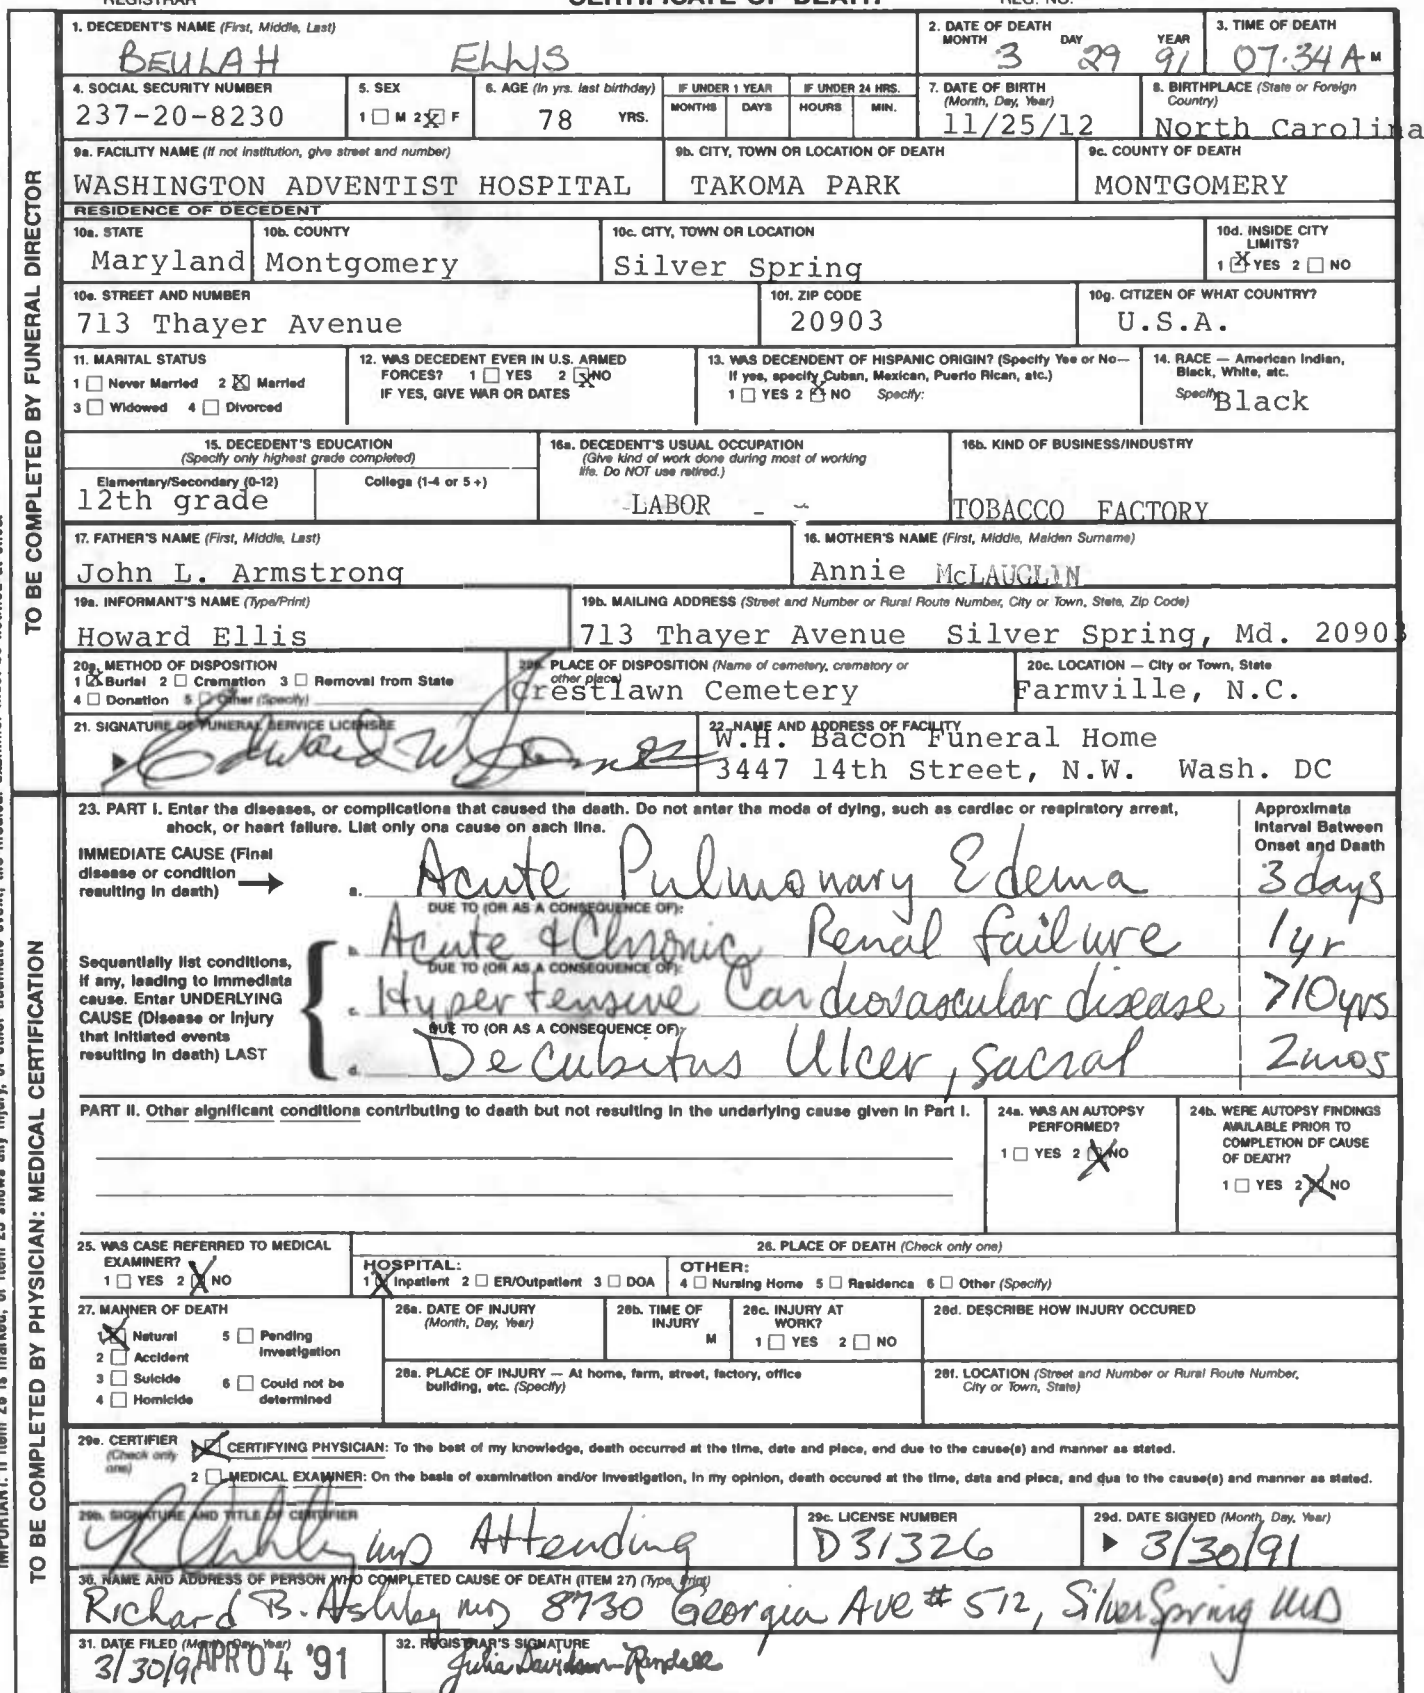 REGISTRAR CERTIFICATE OF DEATH REG. NO.
1. DECEDENT'S NAME (First, Middle, Last)
BEULAH ELLIS
2. DATE OF DEATH
MONTH DAY YEAR
3 29 91
3. TIME OF DEATH
07:34 A M
4. SOCIAL SECURITY NUMBER
237-20-8230
5. SEX
1 M 2 X F
6. AGE (In yrs. last birthday)
78 YRS.
IF UNDER 1 YEAR
MONTHS DAYS
IF UNDER 24 HRS.
HOURS MIN.
7. DATE OF BIRTH
(Month, Day, Year)
11/25/12
8. BIRTHPLACE (State or Foreign
Country)
North Carolina
9a. FACILITY NAME (If not institution, give street and number)
WASHINGTON ADVENTIST HOSPITAL
9b. CITY, TOWN OR LOCATION OF DEATH
TAKOMA PARK
9c. COUNTY OF DEATH
MONTGOMERY
RESIDENCE OF DECEDENT
10a. STATE
Maryland
10b. COUNTY
Montgomery
10c. CITY, TOWN OR LOCATION
Silver Spring
10d. INSIDE CITY
LIMITS?
1 X YES 2 NO
10e. STREET AND NUMBER
713 Thayer Avenue
10f. ZIP CODE
20903
10g. CITIZEN OF WHAT COUNTRY?
U.S.A.
11. MARITAL STATUS
1 Never Married 2 X Married
3 Widowed 4 Divorced
12. WAS DECEDENT EVER IN U.S. ARMED
FORCES? 1 YES 2 X NO
IF YES, GIVE WAR OR DATES
13. WAS DECENDENT OF HISPANIC ORIGIN? (Specify Yes or No—
If yes, specify Cuban, Mexican, Puerto Rican, etc.)
1 YES 2 X NO Specify:
14. RACE — American Indian,
Black, White, etc.
Specify Black
15. DECEDENT'S EDUCATION
(Specify only highest grade completed)
Elementary/Secondary (0-12) College (1-4 or 5+)
12th grade
16a. DECEDENT'S USUAL OCCUPATION
(Give kind of work done during most of working
life. Do NOT use retired.)
LABOR
16b. KIND OF BUSINESS/INDUSTRY
TOBACCO FACTORY
17. FATHER'S NAME (First, Middle, Last)
John L. Armstrong
18. MOTHER'S NAME (First, Middle, Maiden Surname)
Annie McLAUGLIN
19a. INFORMANT'S NAME (Type/Print)
Howard Ellis
19b. MAILING ADDRESS (Street and Number or Rural Route Number, City or Town, State, Zip Code)
713 Thayer Avenue Silver Spring, Md. 20903
20a. METHOD OF DISPOSITION
1 X Burial 2 Cremation 3 Removal from State
4 Donation 5 Other (Specify)
20b. PLACE OF DISPOSITION (Name of cemetery, crematory or
other place)
Crestlawn Cemetery
20c. LOCATION — City or Town, State
Farmville, N.C.
21. SIGNATURE OF FUNERAL SERVICE LICENSEE
Edward W
22. NAME AND ADDRESS OF FACILITY
W.H. Bacon Funeral Home
3447 14th Street, N.W. Wash. DC
TO BE COMPLETED BY FUNERAL DIRECTOR
23. PART I. Enter the diseases, or complications that caused the death. Do not enter the mode of dying, such as cardiac or respiratory arrest,
shock, or heart failure. List only one cause on each line.
Approximate
Interval Between
Onset and Death
IMMEDIATE CAUSE (Final
disease or condition
resulting in death)
a. Acute Pulmonary Edema 3 days
DUE TO (OR AS A CONSEQUENCE OF):
b. Acute & Chronic Renal failure 1 yr
DUE TO (OR AS A CONSEQUENCE OF):
Sequentially list conditions,
if any, leading to immediate
cause. Enter UNDERLYING
CAUSE (Disease or injury
that initiated events
resulting in death) LAST
c. Hypertensive Cardiovascular disease >10 yrs
DUE TO (OR AS A CONSEQUENCE OF):
d. Decubitus Ulcer, sacral 2 mos
PART II. Other significant conditions contributing to death but not resulting in the underlying cause given in Part I.
24a. WAS AN AUTOPSY
PERFORMED?
1 YES 2 X NO
24b. WERE AUTOPSY FINDINGS
AVAILABLE PRIOR TO
COMPLETION OF CAUSE
OF DEATH?
1 YES 2 X NO
25. WAS CASE REFERRED TO MEDICAL
EXAMINER?
1 YES 2 X NO
26. PLACE OF DEATH (Check only one)
HOSPITAL:
1 X Inpatient 2 ER/Outpatient 3 DOA
OTHER:
4 Nursing Home 5 Residence 6 Other (Specify)
27. MANNER OF DEATH
1 X Natural 5 Pending
Investigation
2 Accident
3 Suicide 6 Could not be
determined
4 Homicide
28a. DATE OF INJURY
(Month, Day, Year)
28b. TIME OF
INJURY
M
28c. INJURY AT
WORK?
1 YES 2 NO
28d. DESCRIBE HOW INJURY OCCURED
28e. PLACE OF INJURY — At home, farm, street, factory, office
building, etc. (Specify)
28f. LOCATION (Street and Number or Rural Route Number,
City or Town, State)
29a. CERTIFIER
(Check only
one)
X CERTIFYING PHYSICIAN: To the best of my knowledge, death occurred at the time, date and place, and due to the cause(s) and manner as stated.
2 MEDICAL EXAMINER: On the basis of examination and/or investigation, in my opinion, death occured at the time, date and place, and due to the cause(s) and manner as stated.
29b. SIGNATURE AND TITLE OF CERTIFIER
R Ashby MD Attending
29c. LICENSE NUMBER
D31326
29d. DATE SIGNED (Month, Day, Year)
3/30/91
30. NAME AND ADDRESS OF PERSON WHO COMPLETED CAUSE OF DEATH (ITEM 27) (Type, Print)
Richard B. Ashby MD 8730 Georgia Ave # 512, Silver Spring MD
31. DATE FILED (Month, Day, Year)
3/30/91 APR 04 '91
32. REGISTRAR'S SIGNATURE
Julia Davidson-Randall
TO BE COMPLETED BY PHYSICIAN: MEDICAL CERTIFICATION